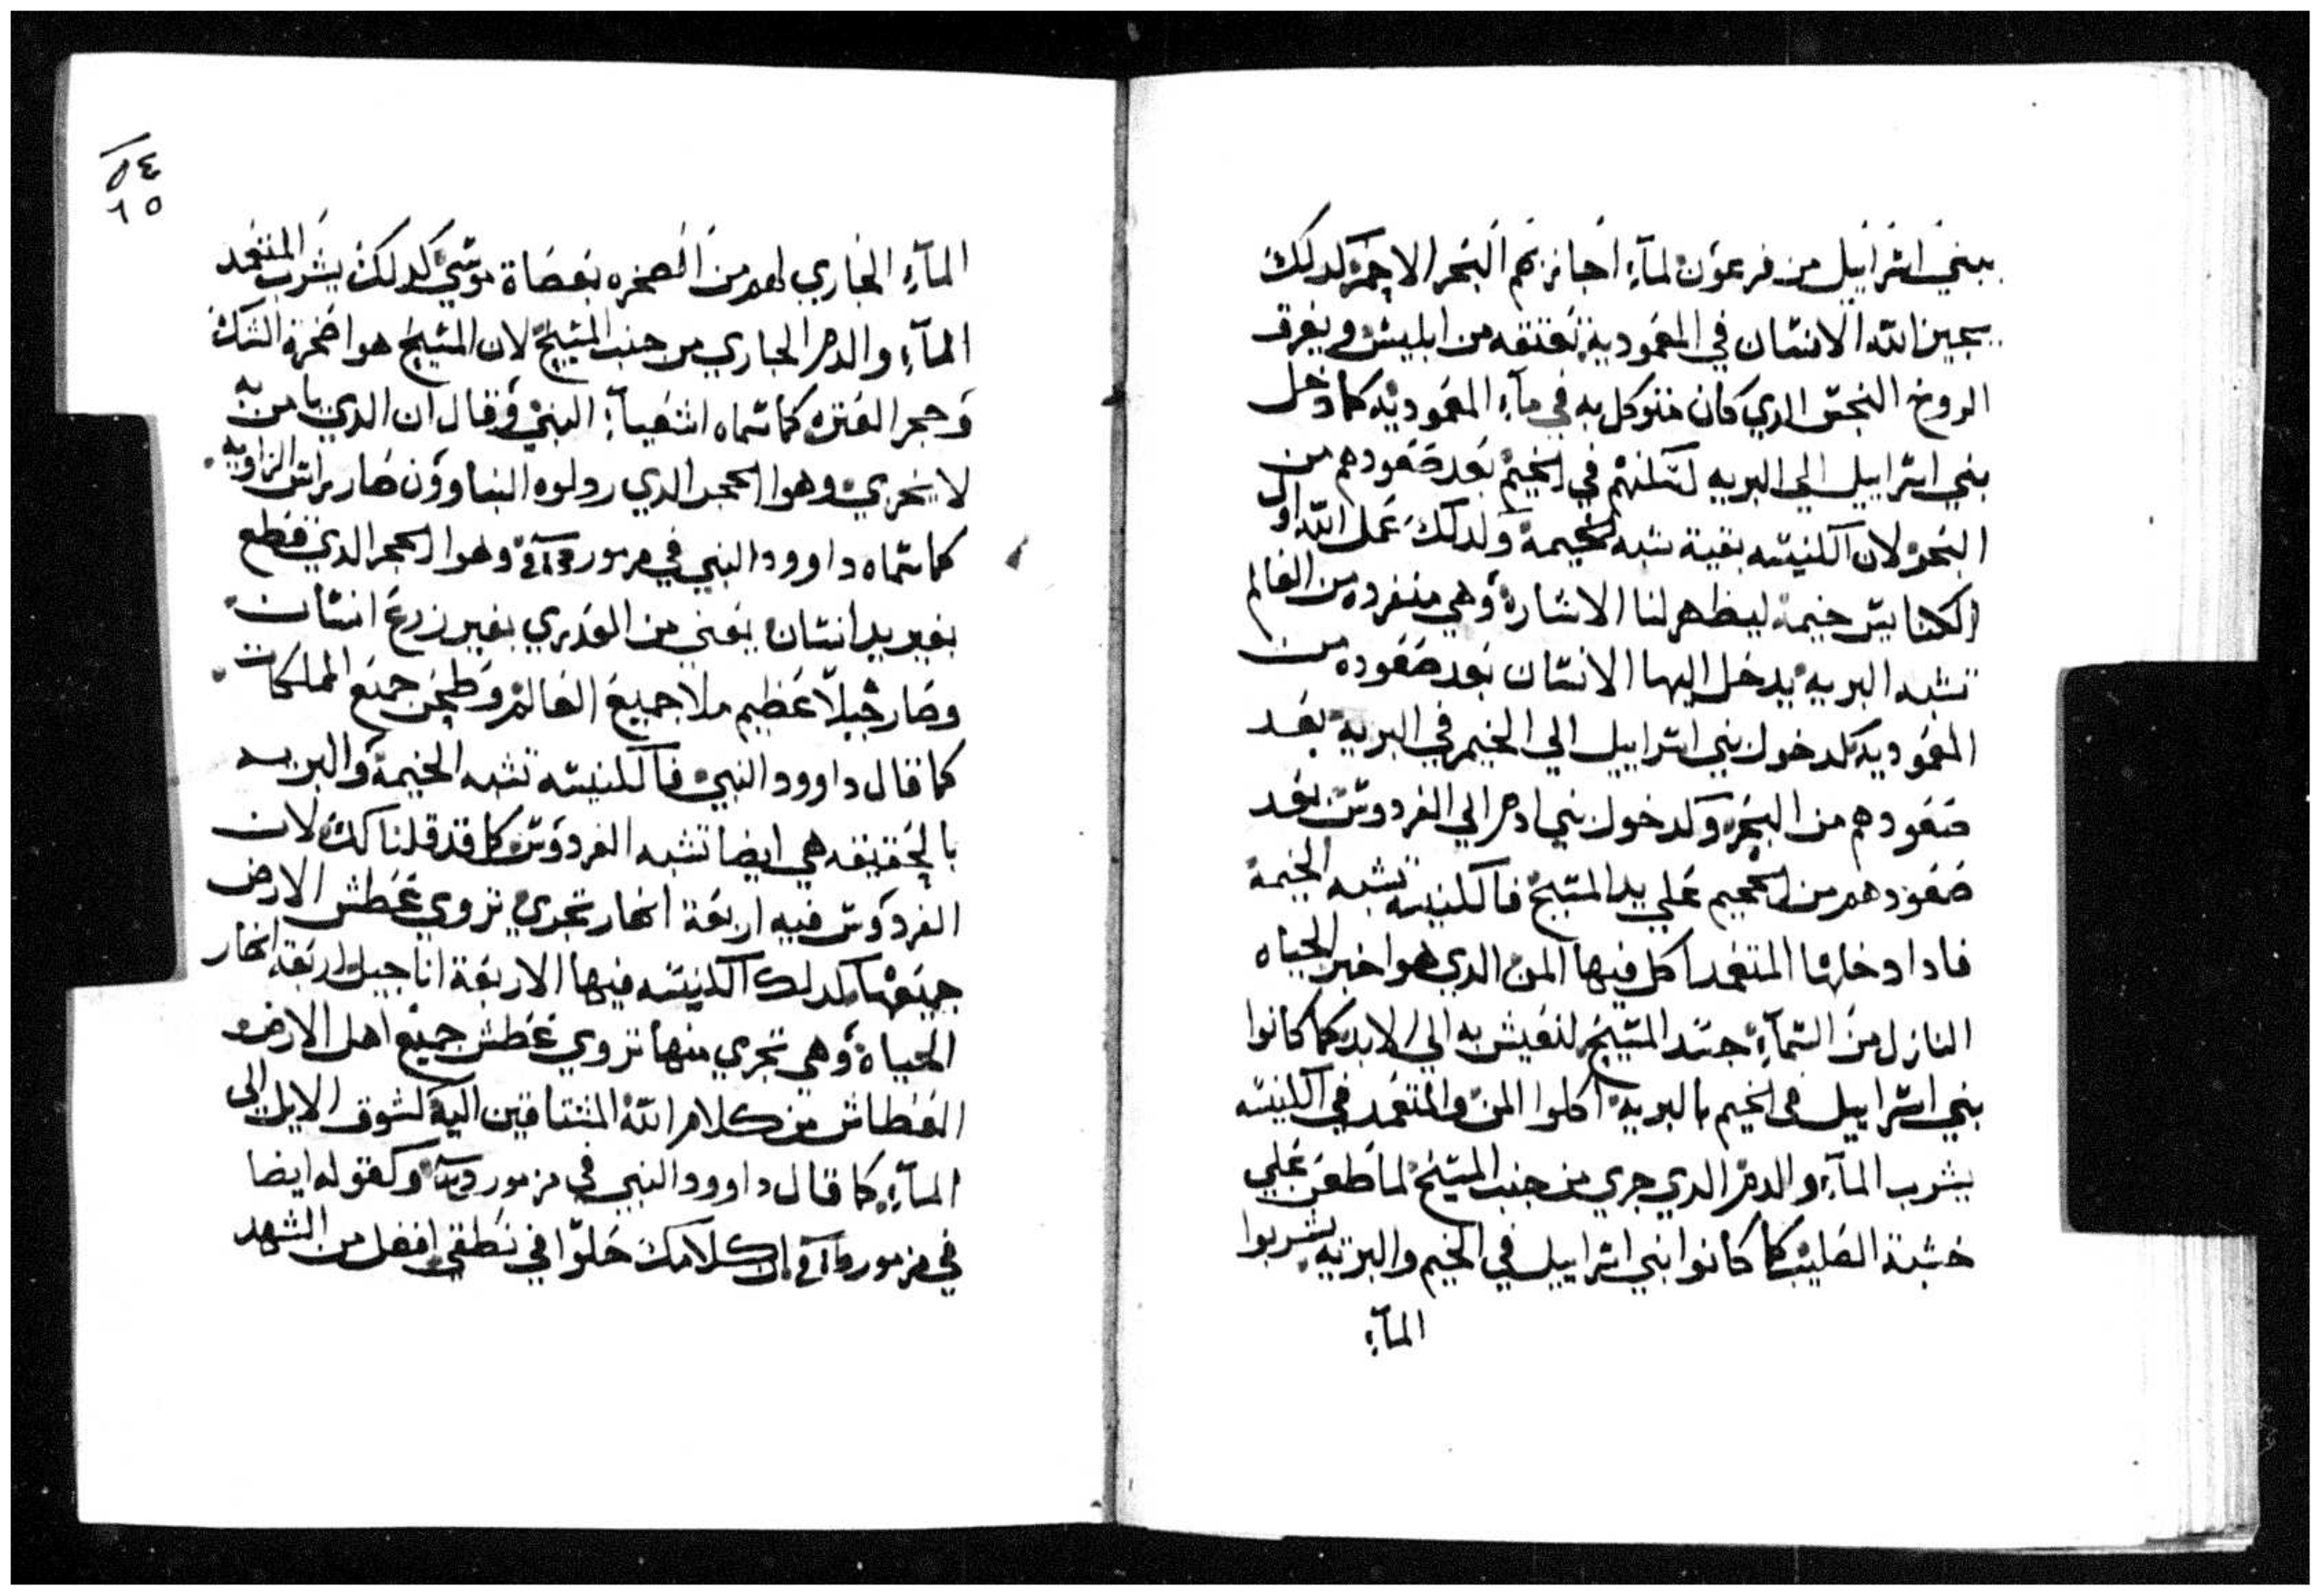 ببني اسراييل من فرعون لمآء اجازهم البحر الاحمر كدلك
يجيز الله الانسان في المعمودية يعتقه من ابليس ويغرق
الروح النجس الدي كان متوكل به في مآء المعموديه كما دخل
بني اسراييل الي البريه لتكنهم في الخيم بعد صعودهم من
البحر لان الكنيسه بقية شبه الخيمة ولدلك عمل الله اول
الكنايس خيمة ليظهر لنا الاشارة وهي منفرده من العالم
تشبه البريه يدخل اليها الانسان بعد صعوده من
المعموديه كدخول بني اسراييل الي الخيم في البريه بعد
صعودهم من البحر وكدخول بني ادم الي الفردوس بعد
صعودهم من الجحيم علي يد المسيح فالكنيسه تشبه الخيمة
فادا دخلها المتعمد اكل فيها المن الدي هوا خبز الحياه
النازل من السمآء جسد المسيح لنعيش به الي الابد كما كانوا
بني اسراييل في الخيم بالبريه اكلوا المن والمتعمد في الكنيسه
يشرب المآء والدم الدي جري من جنب المسيح لما طعن علي
خشبة الصليب كما كانوا بني اسراييل في الخيم والبريه يشربوا
المآء
٥٤
٦٥
المآء الجاري لهم من الصخره بعصاة موسي كدلك يشرب المتعمد
المآء والدم الجاري من جنب المسيح لان المسيح هوا صخرة الشك
وحجر العتره كما سماه اشعيآء النبي وقال ان الدي يامن به
لا يخزي وهوا الحجر الدي ردلوه البناوون صار راس الزاويه
كما سماه داوود النبي في مزمور وهوا الحجر الدي قطع
بغير يد انسان يعني من العدري بغير زرع انسان
وصار جبلا عظيم ملا جميع العالم وطحن جميع المملكات
كما قال داوود النبي فالكنيسه تشبه الخيمة والبريه
بالحقيقه هي ايضا تشبه الفردوس كما قد قلنا لك لان
الفردوس فيه اربعة انهار تجري تروي عطش الارض
جميعها كدلك الكنيسه فيها الاربعة اناجيل اربعة انهار
الحياة وهي تجري منها تروي عطش جميع اهل الارض
العطاش من كلام الله المشتاقين اليه كشوق الايل الي
المآء كما قال داوود النبي في مزمور وكقوله ايضا
في مزمور ان كلامك حلوا في نطقي افضل من الشهد